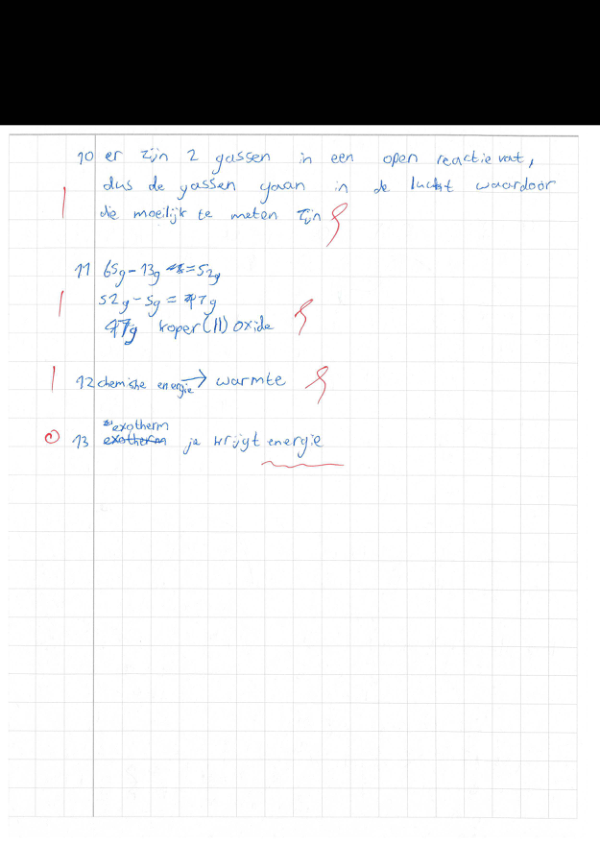 10 er zijn 2 gassen in een open reactievat,
dus de gassen gaan in de lucht waardoor
die moeilijk te meten zijn
11 65g-13g = 52g
52g-5g = 47g
47g koper(II) oxide
12 chemishe energie → warmte
exotherm
13 ja krijgt energie